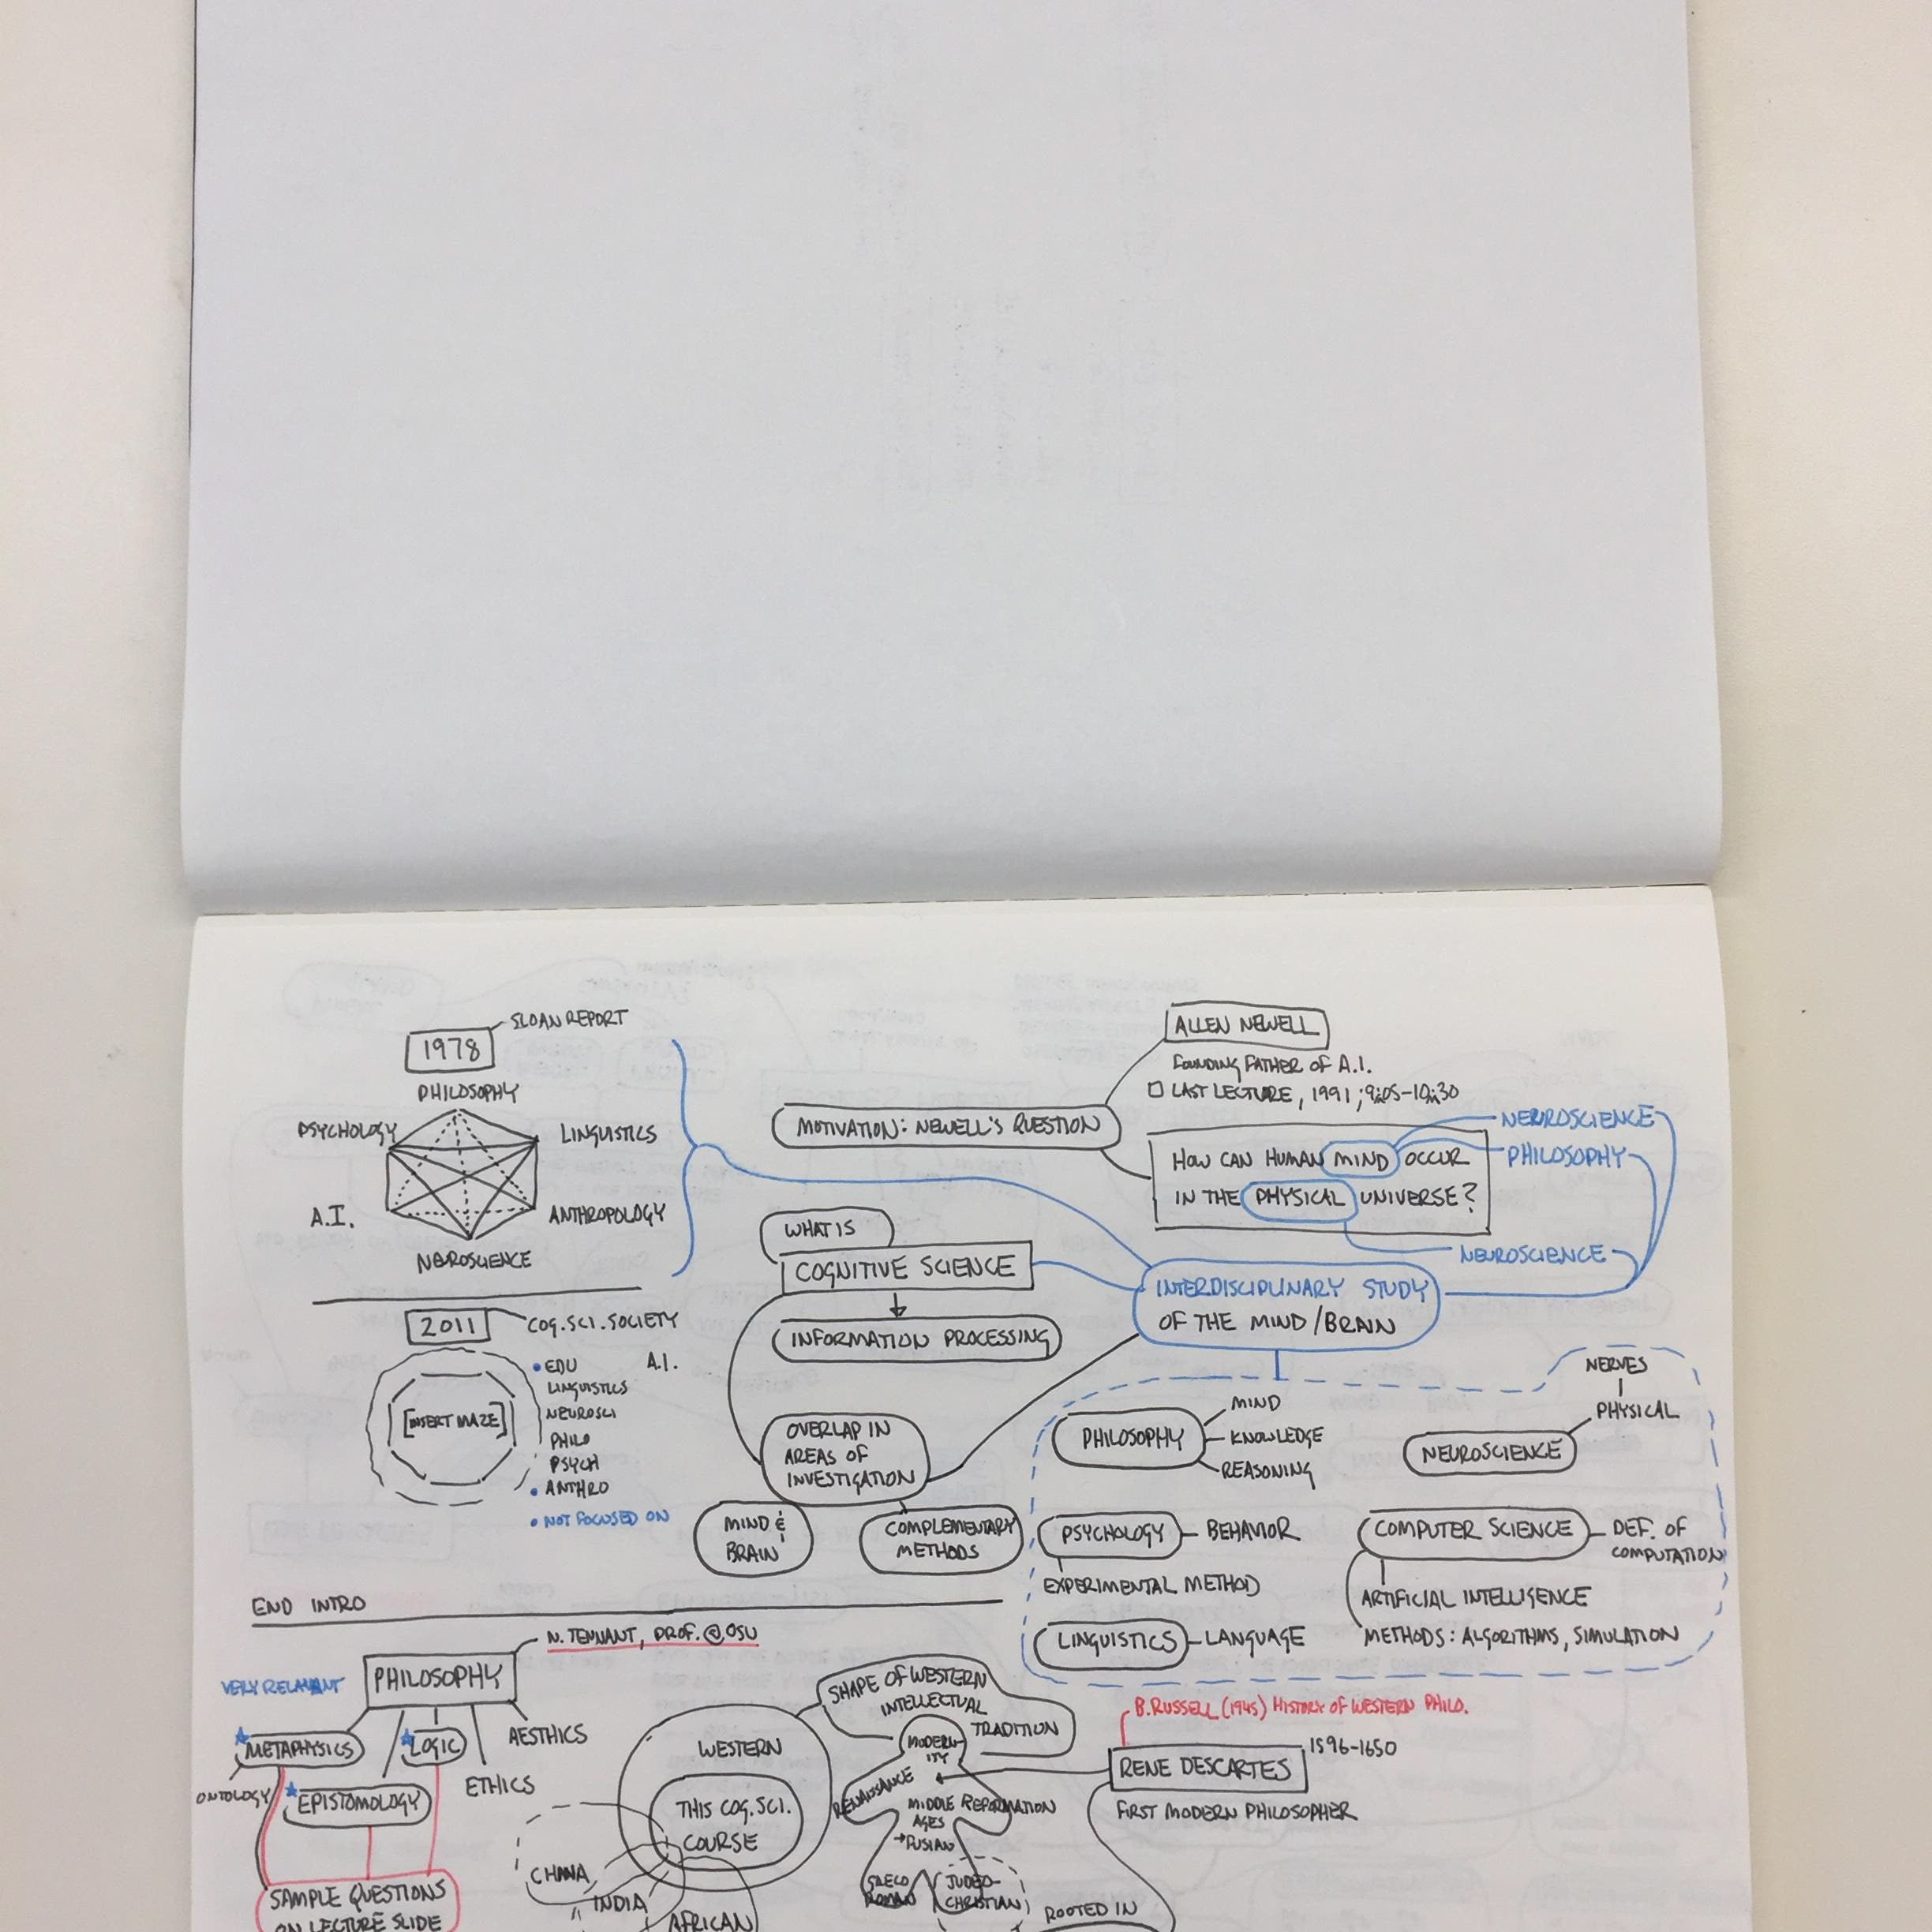 SLOAN REPORT
1978
PHILOSOPHY
PSYCHOLOGY
LINGUISTICS
A.I.
ANTHROPOLOGY
NEUROSCIENCE
2011
COG.SCI.SOCIETY
[INSERT MAZE]
• EDU
A.I.
LINGUISTICS
NEUROSCI
PHILO
PSYCH
• ANTHRO
• NOT FOCUSED ON
ALLEN NEWELL
FOUNDING FATHER OF A.I.
☐ LAST LECTURE, 1991; 9:05-10:30
MOTIVATION: NEWELL'S QUESTION
HOW CAN HUMAN MIND OCCUR
IN THE PHYSICAL UNIVERSE?
NEUROSCIENCE
PHILOSOPHY
NEUROSCIENCE
WHAT IS
COGNITIVE SCIENCE
INFORMATION PROCESSING
INTERDISCIPLINARY STUDY
OF THE MIND/BRAIN
OVERLAP IN
AREAS OF
INVESTIGATION
MIND &
BRAIN
COMPLEMENTARY
METHODS
PHILOSOPHY
MIND
KNOWLEDGE
REASONING
NERVES
PHYSICAL
NEUROSCIENCE
PSYCHOLOGY
BEHAVIOR
EXPERIMENTAL METHOD
COMPUTER SCIENCE
DEF. OF
COMPUTATION
ARTIFICIAL INTELLIGENCE
METHODS: ALGORITHMS, SIMULATION
LINGUISTICS
LANGUAGE
END INTRO
N. TENNANT, PROF. @ OSU
VERY RELAVANT
PHILOSOPHY
METAPHYSICS
LOGIC
AESTHICS
ONTOLOGY
EPISTOMOLOGY
ETHICS
SAMPLE QUESTIONS
ON LECTURE SLIDE
WESTERN
THIS COG.SCI.
COURSE
CHINA
INDIA
AFRICAN
SHAPE OF WESTERN
INTELLECTUAL
TRADITION
MODERN-
ITY
RENAISSANCE
REFORMATION
MIDDLE
AGES
→FUSIAN
GRECO
ROMAN
JUDEO-
CHRISTIAN
B.RUSSELL (1945) HISTORY OF WESTERN PHILO.
RENE DESCARTES
1596-1650
FIRST MODERN PHILOSOPHER
ROOTED IN